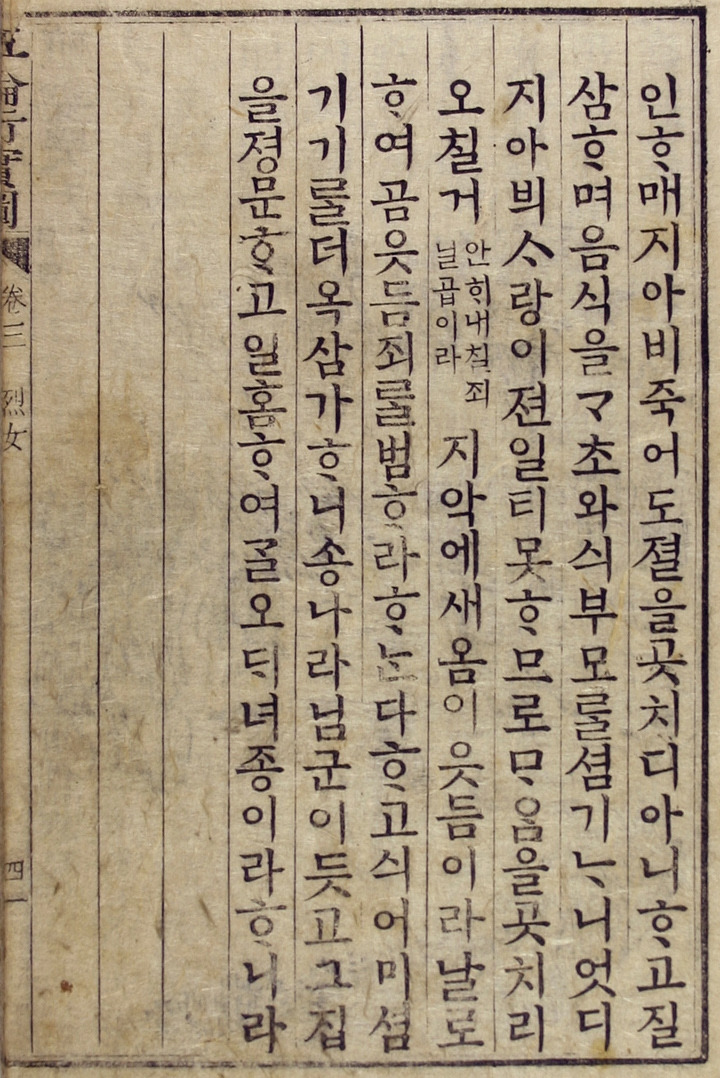 인ᄒᆞ매지아비죽어도졀을곳치디아니ᄒᆞ고질
삼ᄒᆞ며음식을ᄀᆞ초와싀부모ᄅᆞᆯ셤기ᄂᆞ니엇디
지아븨ᄉᆞ랑이젼일티못ᄒᆞ므로ᄆᆞ음을곳치리
오칠거
안ᄒᆡ내칠죄
닐곱이라
지악에새옴이읏듬이라날로
ᄒᆞ여곰읏듬죄ᄅᆞᆯ범ᄒᆞ라ᄒᆞᄂᆞᆫ다ᄒᆞ고싀어미셤
기기ᄅᆞᆯ더옥삼가ᄒᆞ니송나라님군이듯고그집
을졍문ᄒᆞ고일홈ᄒᆞ여ᄀᆞᆯ오ᄃᆡ녀종이라ᄒᆞ니라
五倫行實圖 卷三 烈女